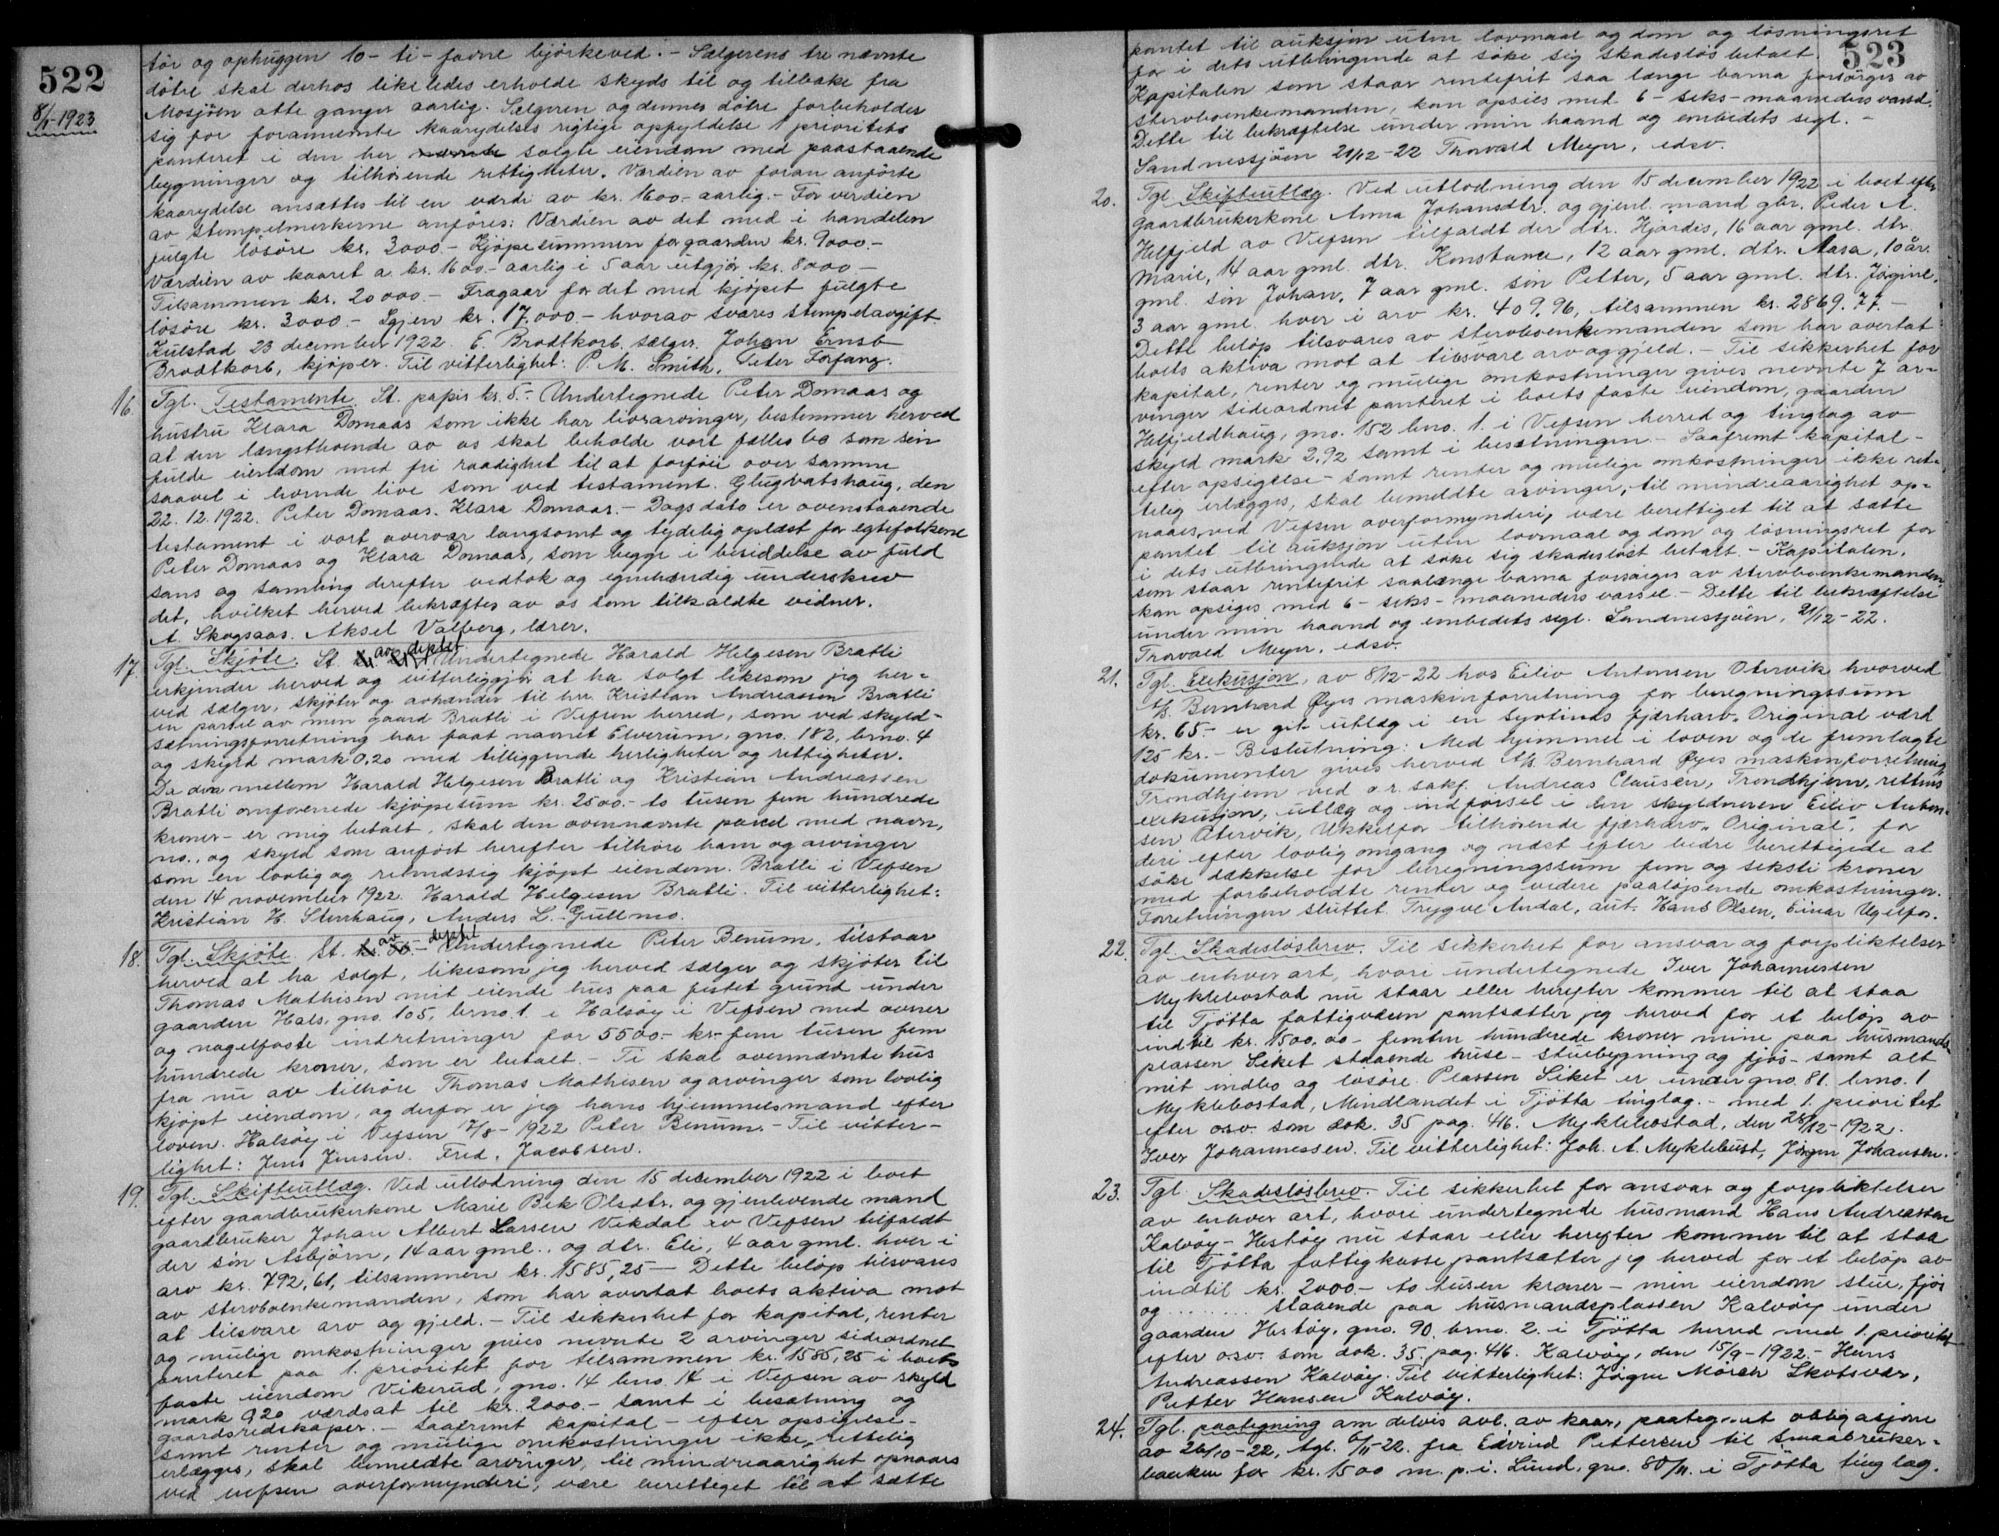 522
8/1-1923
tör og ophuggen 10 - ti - favne bjørkeved. - Sælgerens tre nævnte
døtre skal derhos likeledes erholde skyds til og tilbake fra
Mosjøen otte ganger aarlig. Sælgeren og dennes døtre forbeholder
sig for forannemte kaarydelses rigtige opfyldelse 1 prioritets
panteret i den her solgte eiendom med paastaaende
bygninger og tilhørende rettigheter. Værdien av foran anførte
kaarydelse ansættes til en værdi av kr. 1600.- aarlig. - For verdien
av stempelmerkerne anføres: Værdien av det med i handelen
fulgte løsøre kr. 3000.- Kjøpesummen for gaarden kr. 9000.-
Værdien av kaaret a kr. 1600.- aarlig i 5 aar utgjør kr. 8000 -
Tilsammen kr. 20000.- Fragaar for det med kjøpet fulgte
løsøre kr. 3000.- Igjen kr. 17.000 - hvorav svares stempelavgift.
Kulstad 23 december 1922. E. Brodtkorb, sælger. Johan Ernst
Brodtkorb, kjøper. Til vitterlighet: P. M. Smith, Peter Forfang.
16. Tgl. Testamente. St. papir kr. 5.- Undertegnede Peter Domaas og
hustru Klara Domaas som ikke har livsarvinger, bestemmer herved
at den længstlevende av os skal beholde vort fælles bo som sin
fulde eiendom med fri raadighet til at forföie over samme
saavel i levende live som ved testament. Glugvatshaug, den
22.12.1922. Peter Domaas. Klara Domaas. - Dags dato er ovenstaaende
testament i vort overvær langsomt og tydelig oplæst for egtefolkene
Peter Domaas og Klara Domaas, som begge i besiddelse av fuld
sans og samling derefter vedtok og egenhændig underskrev
det, hvilket herved bekræftes av os som tilkaldte vidner.
A. Skogsaas. Aksel Valberg, lærer.
17. Tgl. Skjøte. St. av deplet Undertegnede Harald Helgesen Bratli
erkjender herved og vitterliggjør at ha solgt likesom jeg her-
ved sælger, skjøter og avhænder til hr. Kristian Andreassen Bratli
en parsel av min gaard Bratli i Vefsen herred, som ved skyld-
sætningsforretning har faat navnet Elverum, gno. 182, brno. 4
og skyld mark 0,20 med tilliggende herligheter og rettigheter.
Da den mellem Harald Helgesen Bratli og Kristian Andreassen
Bratli omforenede kjøpesum kr. 2500.- to tusen fem hundrede
kroner - er mig betalt, skal den ovennævnte parcel med navn,
no., og skyld som anført herefter tilhøre ham og arvinger
som en lovlig og retmæssig kjøpt eiendom. Bratli i Vefsen
den 14 november 1922. Harald Helgesen Bratli. Til vitterlighet:
Kristian H. Stenhaug, Anders L. Gullmo.
18. Tgl. Skjøte. St. av deplet Undertegnede Peter Benum, tilstaar
herved at ha solgt, likesom jeg herved sælger og skjøter til
Thomas Mathisen mit eiende hus paa festet grund under
gaarden Hals, gno. 105, brno. 1 i Halsøy i Vefsen med ovner
og nagelfaste indretninger for 5500.- kr. fem tusen fem
hundrede kroner, som er betalt. - Ti skal ovennævnte hus
fra nu av tilhøre Thomas Mathisen og arvinger som lovlig
kjøpt eiendom, og derfor er jeg hans hjemmelsmand efter
loven. Halsøy i Vefsen 17/8 - 1922 Peter Benum. - Til vitter-
lighet: Jens Jensen. Fred. Jacobsen.
19. Tgl. Skifteutlæg. Ved utlodning den 15 december 1922 i boet
efter gaardbrukerkone Marie Bek Olsdtr. og gjenlevende mand
gaardbruker Johan Albert Larsen Vikdal av Vefsen tilfaldt
der søn Asbjørn, 14 aar gml., og dtr. Eli, 4 aar gml. hver i
arv kr. 792,61, tilsammen kr. 1585,25 - Dette beløp tilsvares
av stervboenkemanden, som har overtat boets aktiva mot
at tilsvare arv og gjeld. - Til sikkerhet for kapital, renter
og mulige omkostninger gives nevnte 2 arvinger sideordnet
panteret paa 1. prioritet for tilsammen kr. 1585,25 i boets
faste eiendom Vikerud, gno. 14 bno. 14 i Vefsen av skyld
mark 0,20 værdsat til kr. 2000.- samt i besætning og
gaardsredskaper. - Saafremt kapital - efter opsigelse -
samt renter og mulige omkostninger ikke rettelig
erlægges, skal bemeldte arvinger, til mindreaarighet opnaaes
ved vefsen overformynderi, være berettiget til at sætte
523
pantet til auksjon uten lovmaal og dom og løsningsret
for i dets utbringende at søke sig skadesløs betalt.
Kapitalen som staar rentefrit saa længe barna forsørges av
stervboenkemanden, kan opsies med 6 - seks - maaneders varsel.
Dette til bekræftelse under min haand og embeds segl. -
Sandnessjøen 21/12 - 22 Thorvald Meyer, edsv.
20. Tgl. Skifteutlæg. Ved utlodning den 15 december 1922 i boet efter
gaardbrukerkone Anna Johansdtr. og gjenl. mand gbr. Peder A.
Helfjeld av Vefsen tilfaldt der dtr. Hjørdis, 16 aar gml. dtr.
Marie, 14 aar gml. dtr. Konstance, 12 aar gml. dtr. Aasa, 10 år
gml. søn Johan, 7 aar gml. søn Petter, 5 aar gml. dtr. Jørgine,
3 aar gml. hver i arv kr. 409.96, tilsammen kr. 2869.77. -
Dette beløp tilsvares av stervboenkemanden som har overtat
boets aktiva mot at tilsvare arv og gjeld. - Til sikkerhet for
kapital, renter og mulige omkostninger gives nevnte 7 ar-
vinger sideordnet panteret i boets faste eiendom, gaarden
Helfjeldhaug, gno. 152 bno. 1. i Vefsen herred og tinglag av
skyld mark 2,92 samt i besætningen. - Saafremt kapital -
efter opsigelse - samt renter og mulige omkostninger ikke ret-
telig erlægges, skal bemeldte arvinger, til mindreaarighet op-
naaes, ved Vefsen overformynderi, være berettiget til at sætte
pantet til auksjon uten lovmaal og dom og løsningsret for
i dets utbringende at søke sig skadesløst betalt. - Kapitalen,
som staar rentefrit saalænge barna forsørges av stervboenkemanden,
kan opsiges med 6 - seks - maaneders varsel. - Dette til bekræftelse
under min haand og embeds segl. Sandnessjøen, 21/12 - 22.
Thorvald Meyer, edsv.
21. Tgl. Exekusjon, av 8/12 - 22 hos Eiliv Antonsen Otervik hvorved
A/S. Bernhard Øyes maskinforretning for beregningssum
kr. 65 - er git utlæg i en syvtinds fjærharv. Original værd
125 kr. - Beslutning: Med hjemmel i loven og de fremlagte
dokumenter gives herved A/S Bernhard Øyes maskinforretning
Trondhjem ved o.r. sakf. Andreas Clausen, Trondhjem, rettens
exekusjon, utlæg og indførsel i den skyldneren Eiliv Anton-
sen Otervik, Ukkelfor tilhørende fjærharv „Original", for
deri efter lovlig omgang og næst efter bedre berettigede at
søke dækkelse for beregningssum fem og seksti kroner
med forbeholdte renter og videre paaløpende omkostninger.
Forretningen sluttet. Trygve Andal, aut. Hans Olsen, Einar Ugelfor.
22. Tgl. Skadesløsbrev. Til sikkerhet for ansvar og forpliktelser
av enhver art, hvori undertegnede Iver Johannessen
Myklebostad nu staar eller herefter kommer til at staa
til Tjøtta fattigvæsen pantsætter jeg herved for et beløp av
indtil kr. 1500,00 - femten hundrede kroner mine paa husmands
plassen Leket staaende huse - stuebygning og fjøs - samt alt
mit indbo og løsøre. Plassen Leket er under gno. 81. brno. 1
Myklebostad, Mindlandet i Tjøtta tinglag. - med 1. prioritet
efter o.s.v. som dok. 35 pag. 416. Myklebostad, den 28/12 - 1922.
Iver Johannessen. Til vitterlighet: Joh. A. Myklebust, Jørgen Johansen.
23. Tgl. Skadesløsbrev. Til sikkerhet for ansvar og forpliktelser
av enhver art, hvori undertegnede husmand Hans Andreassen
Kalvøy - Hestøy nu staar eller herefter kommer til at staa
til Tjøtta fattigkasse pantsætter jeg herved for et beløp av
indtil kr. 2000.- to tusen kroner - min eiendom stue, fjøs
og ......... staaende paa husmandsplassen Kalvøy under
gaarden Hestøy, gno. 90. brno. 2. i Tjøtta herred med 1. prioritet
efter o.s.v. som dok. 35. pag. 416. Kalvøy, den 15/9 - 1922. - Hans
Andreassen Kalvøy. Til vitterlighet: Jørgen Mörch Skotsvær,
Petter Hansen Kalvøy.
24. Tgl. paategning om delvis avl. av kaar, paateg. et obligasjon
av 26/10 - 22, tgl. 6/11 - 22. fra Edvind Pettersen til Smaabruker-
banken for kr. 1500 m. p. i. Lund, gno. 80/11. i Tjøtta tinglag.